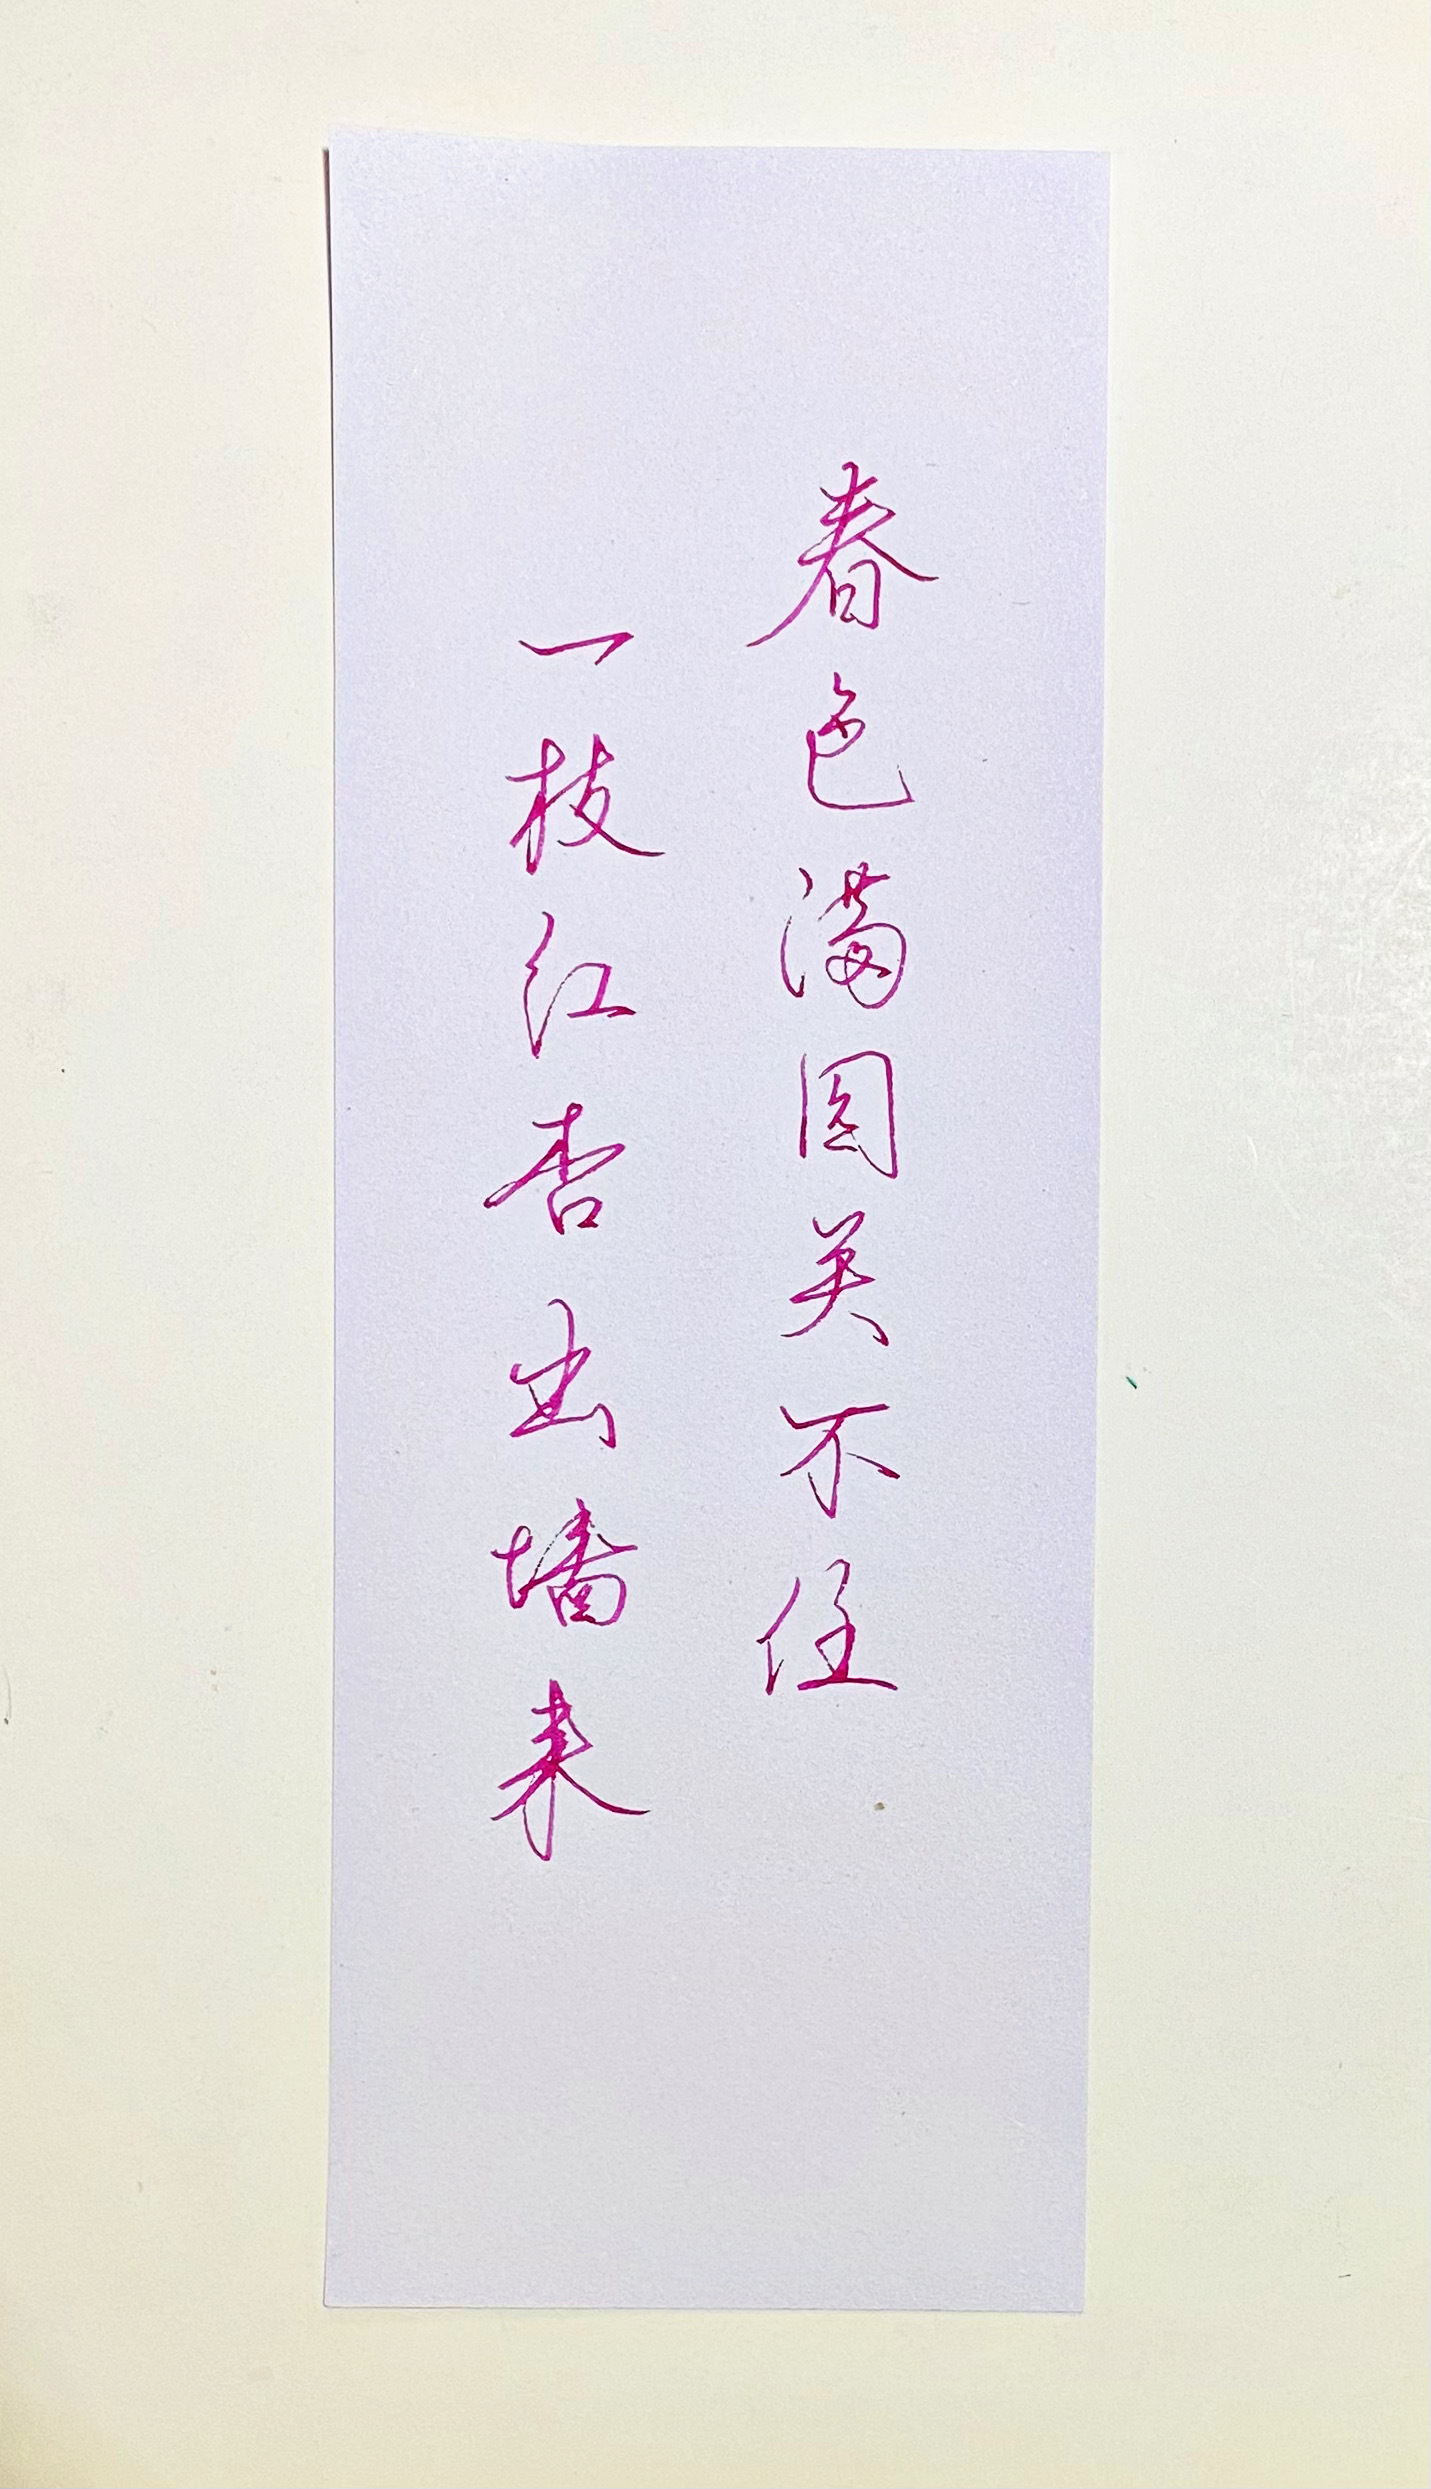 春色满园关不住
一枝红杏出墙来